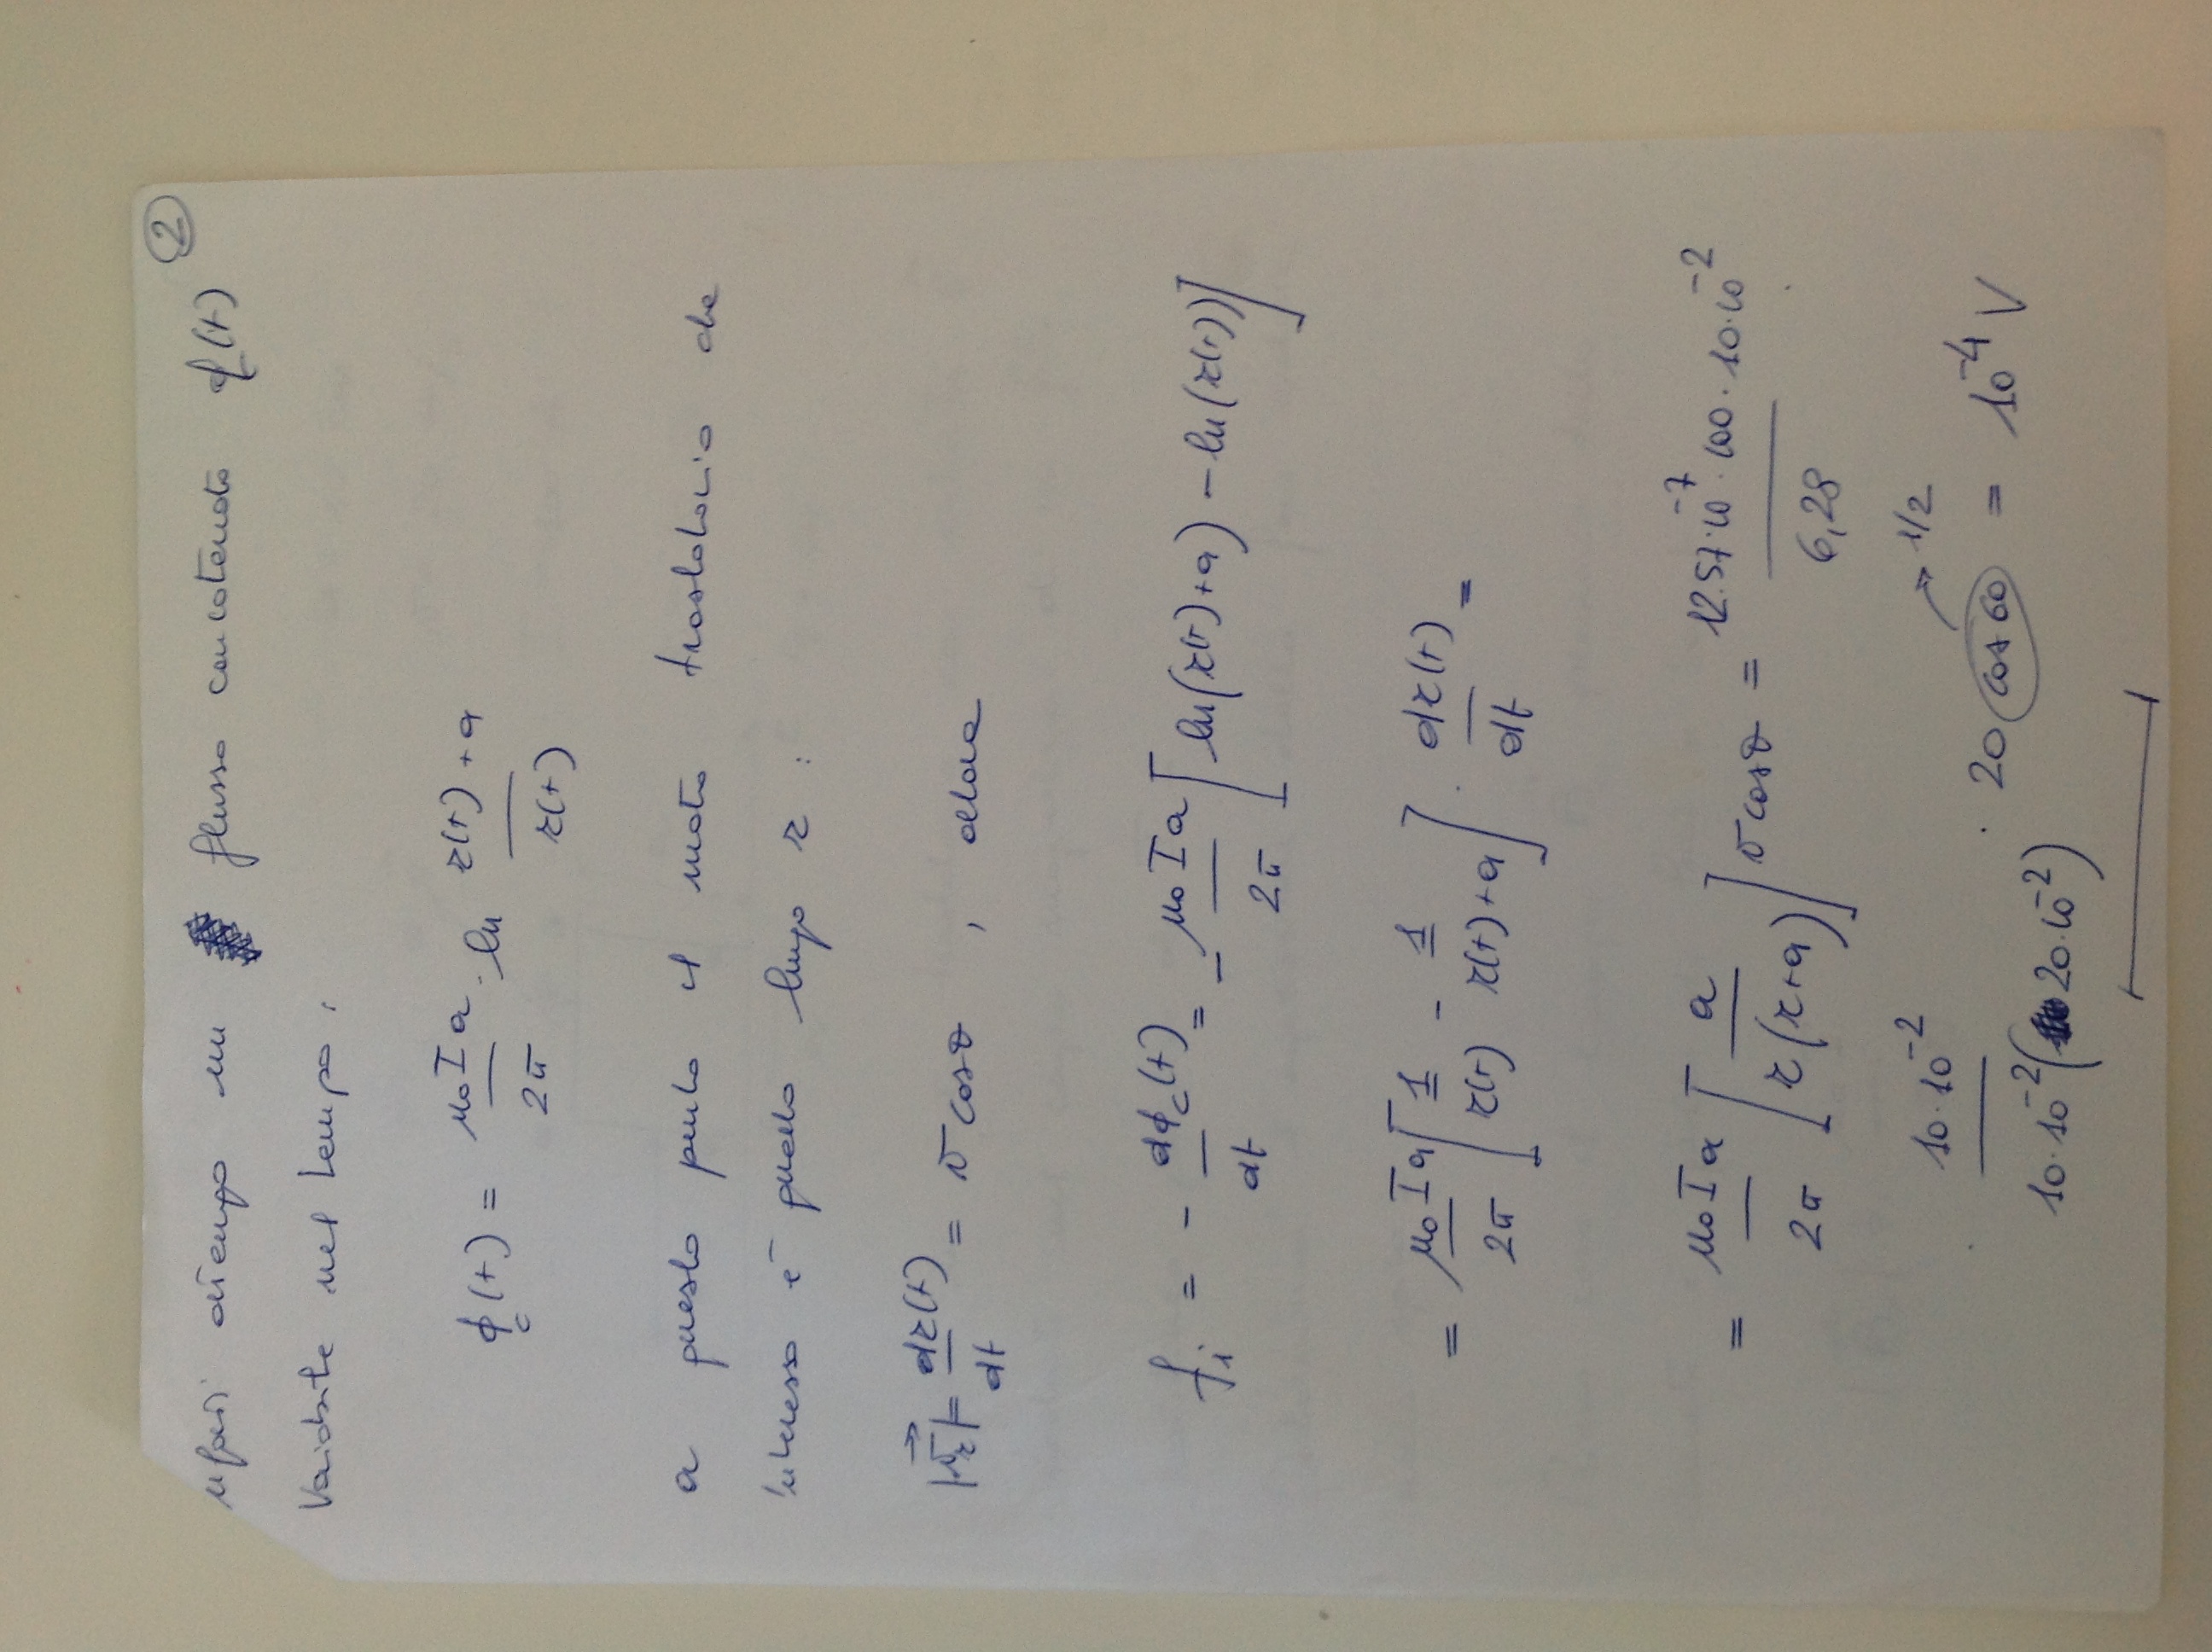 2
infatti ottengo un flusso concatenato ϕc(t)
variabile nel tempo:
ϕc(t) = μ₀Ia/2π · ln (r(t)+a)/r(t)
a questo punto il moto traslatorio che
interessa è quello lungo r :
|v⃗r| = dr(t)/dt = v cosθ , allora
fi = - dϕc(t)/dt = - μ₀Ia/2π [ln(r(t)+a) - ln(r(t))]
= μ₀Ia/2π [1/r(t) - 1/(r(t)+a)] · dr(t)/dt =
= μ₀Ia/2π [a/(r(r+a))] v cosθ = 12.57·10⁻⁷·100·10·10⁻²/6,28
· 10·10⁻²/(10·10⁻²(20·10⁻²)) · 20 cos60 → 1/2 = 10⁻⁴ V